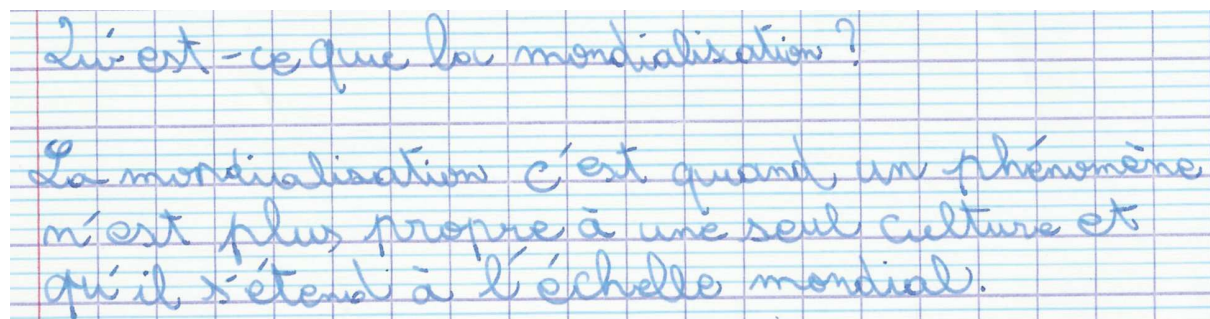 Qu'est-ce que la mondialisation ?
La mondialisation c'est quand un phénomène
n'est plus propre à une seul culture et
qu'il s'étend à l'échelle mondial.